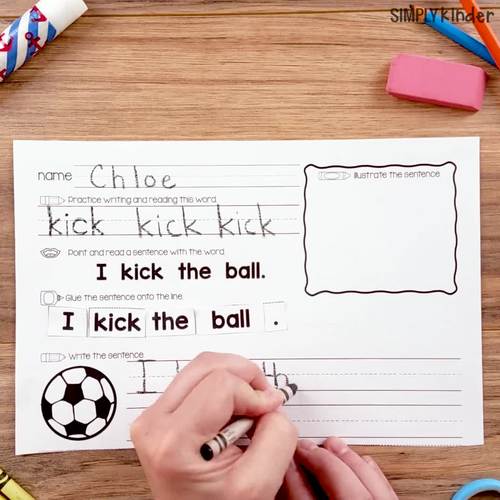 SIMPLYKinder
name Chloe
Illustrate the sentence
Practice writing and reading this word.
kick kick kick
Point and read a sentence with the word.
I kick the ball.
Glue the sentence onto the line.
I kick the ball .
Write the sentence.
I